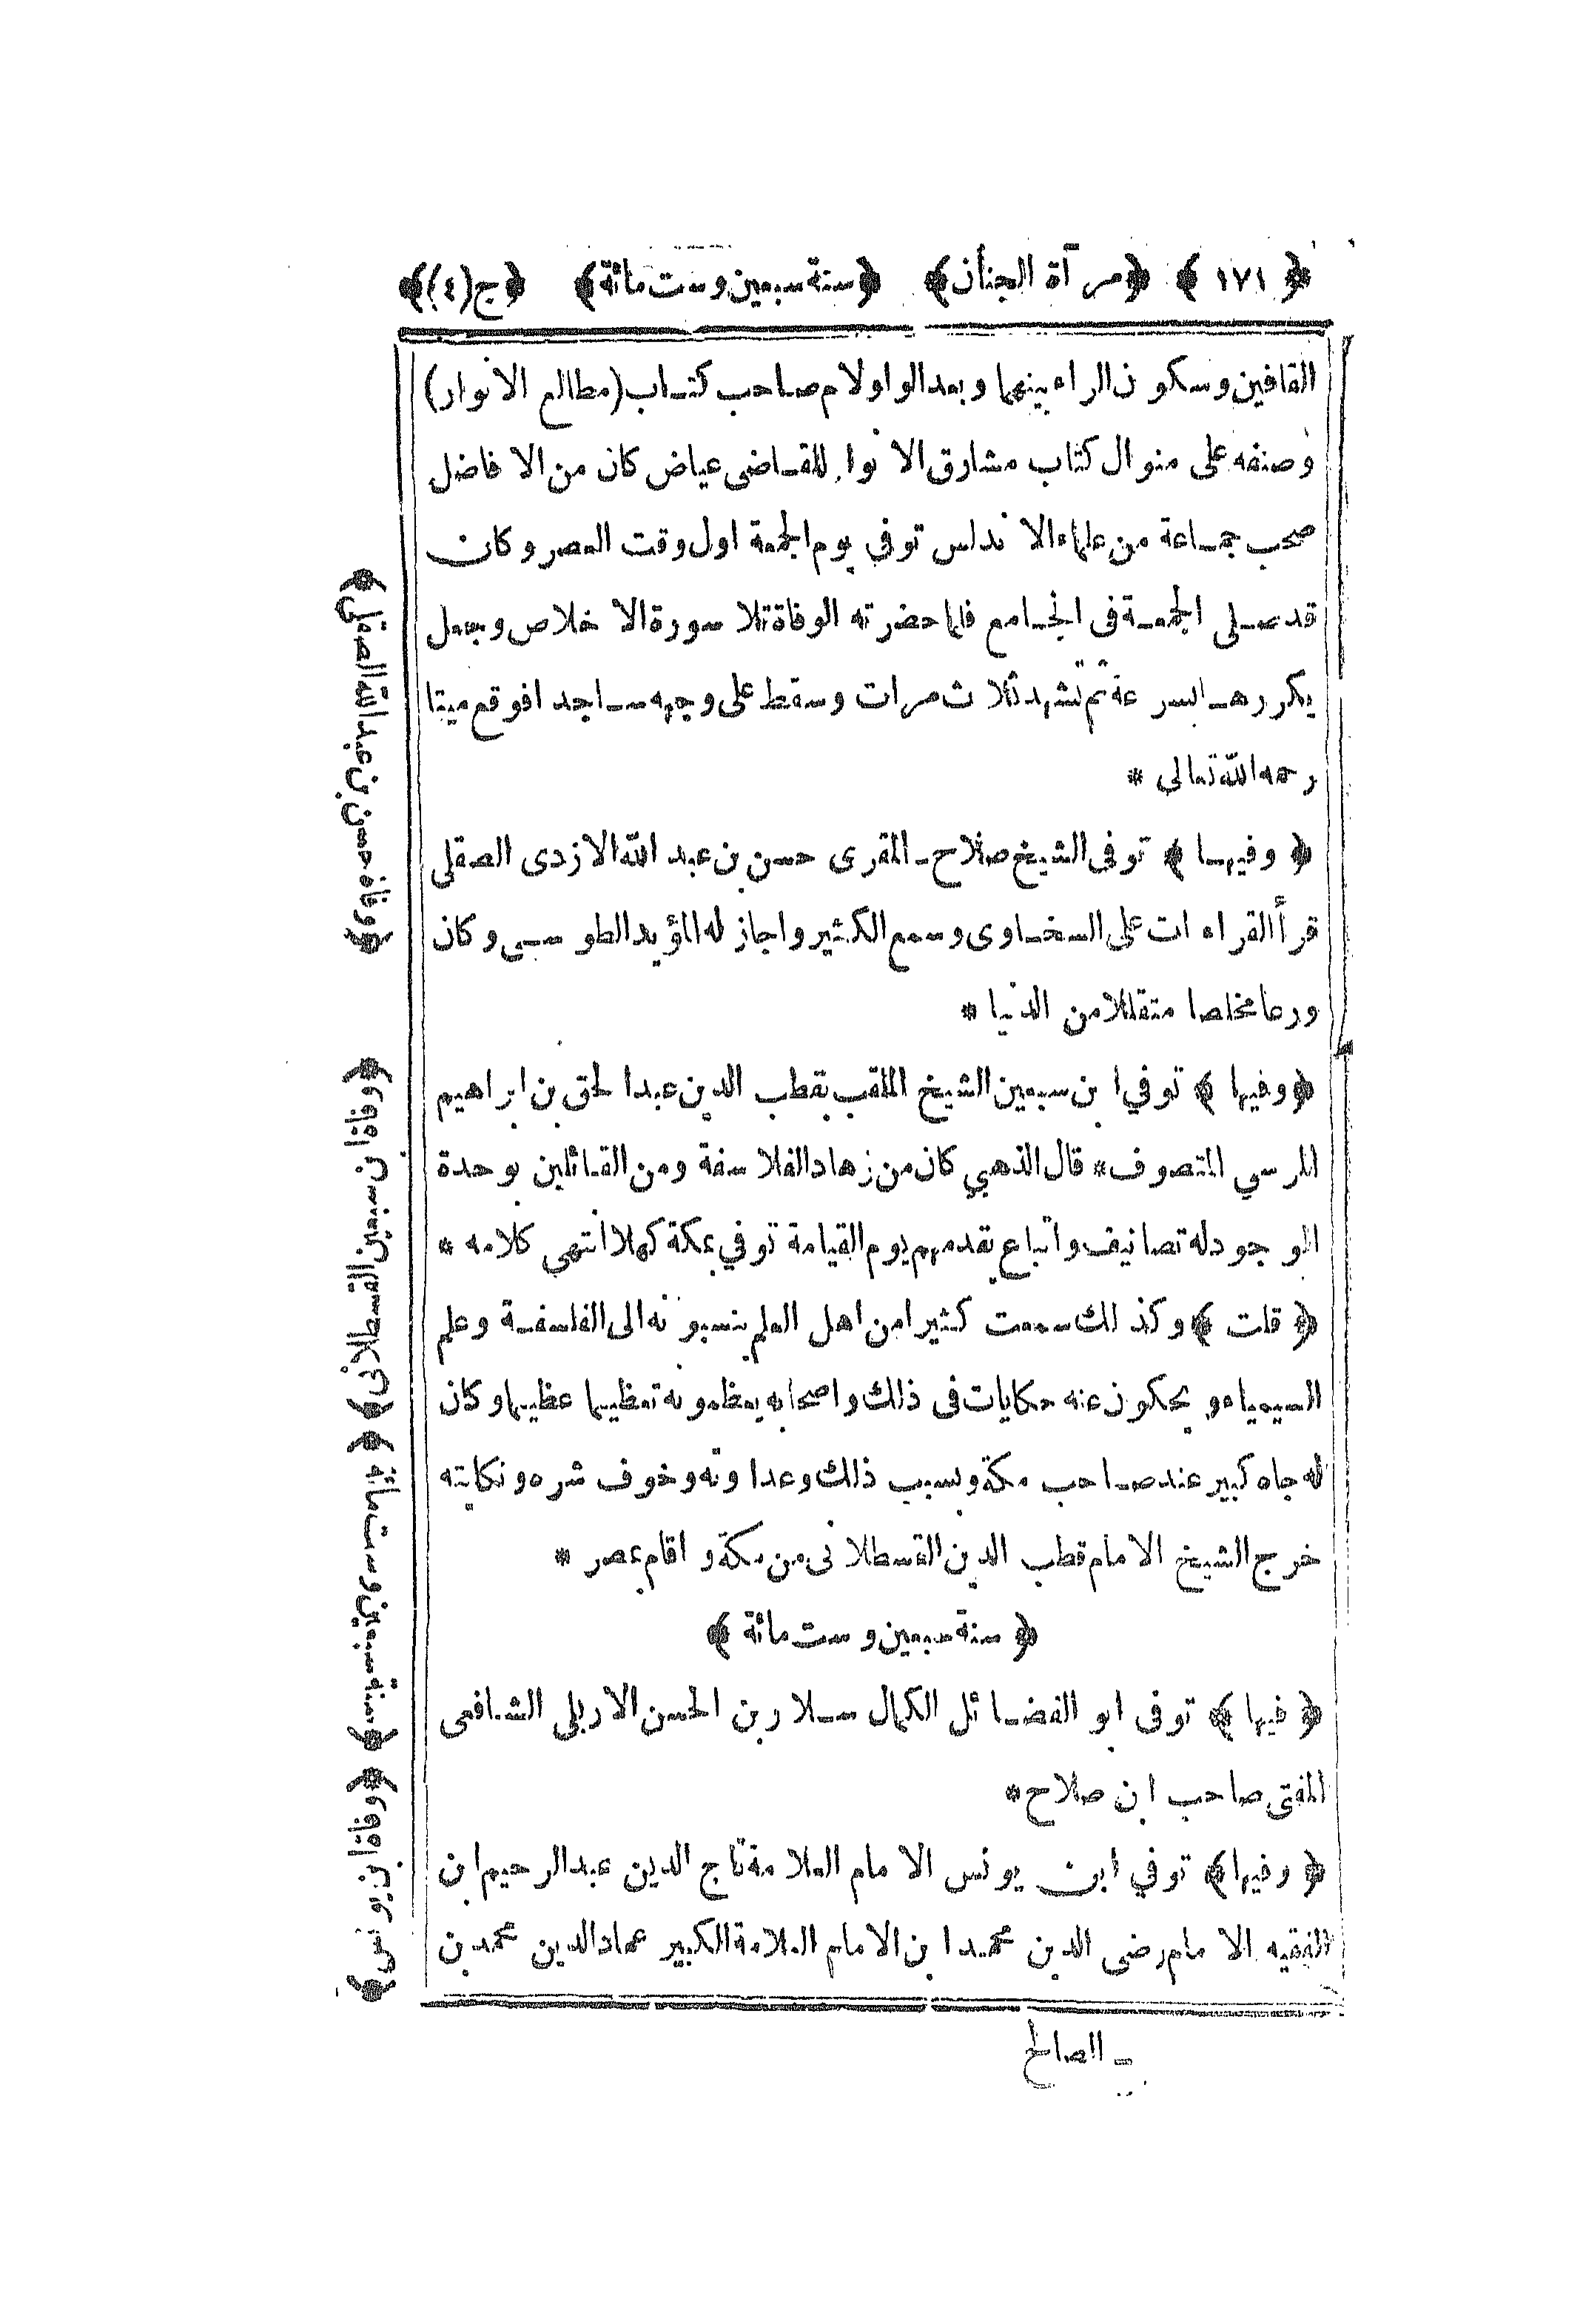 ﴿ ١٧١ ﴾ ﴿مرآة الجنان﴾ ﴿سنة سبعين وست مائة﴾ ﴿ج(٤)﴾
القافين وسكون الراء بينهما وبعد الواو لام صاحب كتاب (مطالع الانوار)
وصنفه على منوال كتاب مشارق الانوار للقاضى عياض كان من الافاضل
صحب جماعة من علماء الاندلس توفي يوم الجمعة اول وقت العصر وكان
قد صلى الجمعة فى الجامع فلما حضرته الوفاة تلا سورة الاخلاص وجعل
يكررها بسرعة ثم تشهد ثلاث مرات وسقط على وجهه ساجدا فوقع ميتا
رحمه الله تعالى *
﴿ وفيها ﴾ توفى الشيخ صلاح ـ المقرى حسن بن عبد الله الازدى الصقلى
قرأ القراءات على السخاوى وسمع الكثير واجاز له المؤيد الطوسى وكان
ورعا مخلصا متقللا من الدنيا *
﴿وفيها ﴾ توفي ابن سبعين الشيخ الملقب بقطب الدين عبد الحق بن ابراهيم
المرسي المتصوف * قال الذهبي كان من زهاد الفلاسفة ومن القائلين بوحدة
الوجود له تصانيف واتباع يقدمهم يوم القيامة توفي بمكة كهلا انتهى كلامه *
﴿ قلت ﴾ وكذلك سمعت كثيرا من اهل العلم ينسبونه الى الفلسفة وعلم
السيمياء ويحكون عنه حكايات فى ذلك واصحابه يعظمونه تعظيما عظيما وكان
له جاه كبير عند صاحب مكة وبسبب ذلك وعداوته وخوف شره ونكايته
خرج الشيخ الامام قطب الدين القسطلانى من مكة واقام بمصر *
﴿ سنة سبعين وست مائة ﴾
﴿ فيها ﴾ توفى ابو الفضائل الكمال سلار بن الحسن الاربلى الشافعى
المفتى صاحب ابن صلاح *
﴿ وفيها﴾ توفي ابن يونس الامام العلامة تاج الدين عبد الرحيم ابن
الفقيه الامام رضى الدين محمد ابن الامام العلامة الكبير عماد الدين محمد بن
ـ الصالح
﴿وفاة حسن بن عبد الله الصقلى﴾
﴿وفاة ابن سبعين القسطلانى﴾
﴿سنة سبعين وست مائة﴾
﴿وفاة ابن يونس﴾